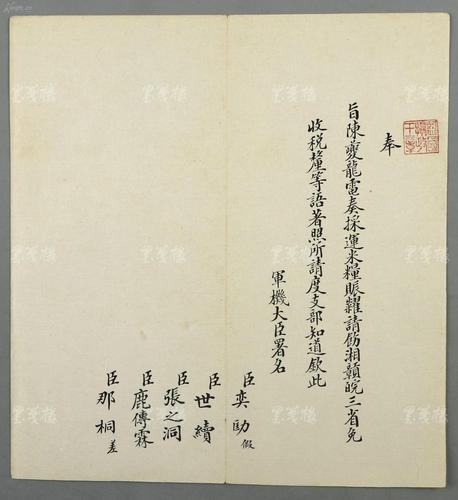 奉
旨陳夔龍電奏採運米糧賑糶請飭湘贛皖三省免
收稅釐等語著照所請度支部知道欽此
軍機大臣署名
臣奕劻假
臣世續
臣張之洞
臣鹿傳霖
臣那桐差